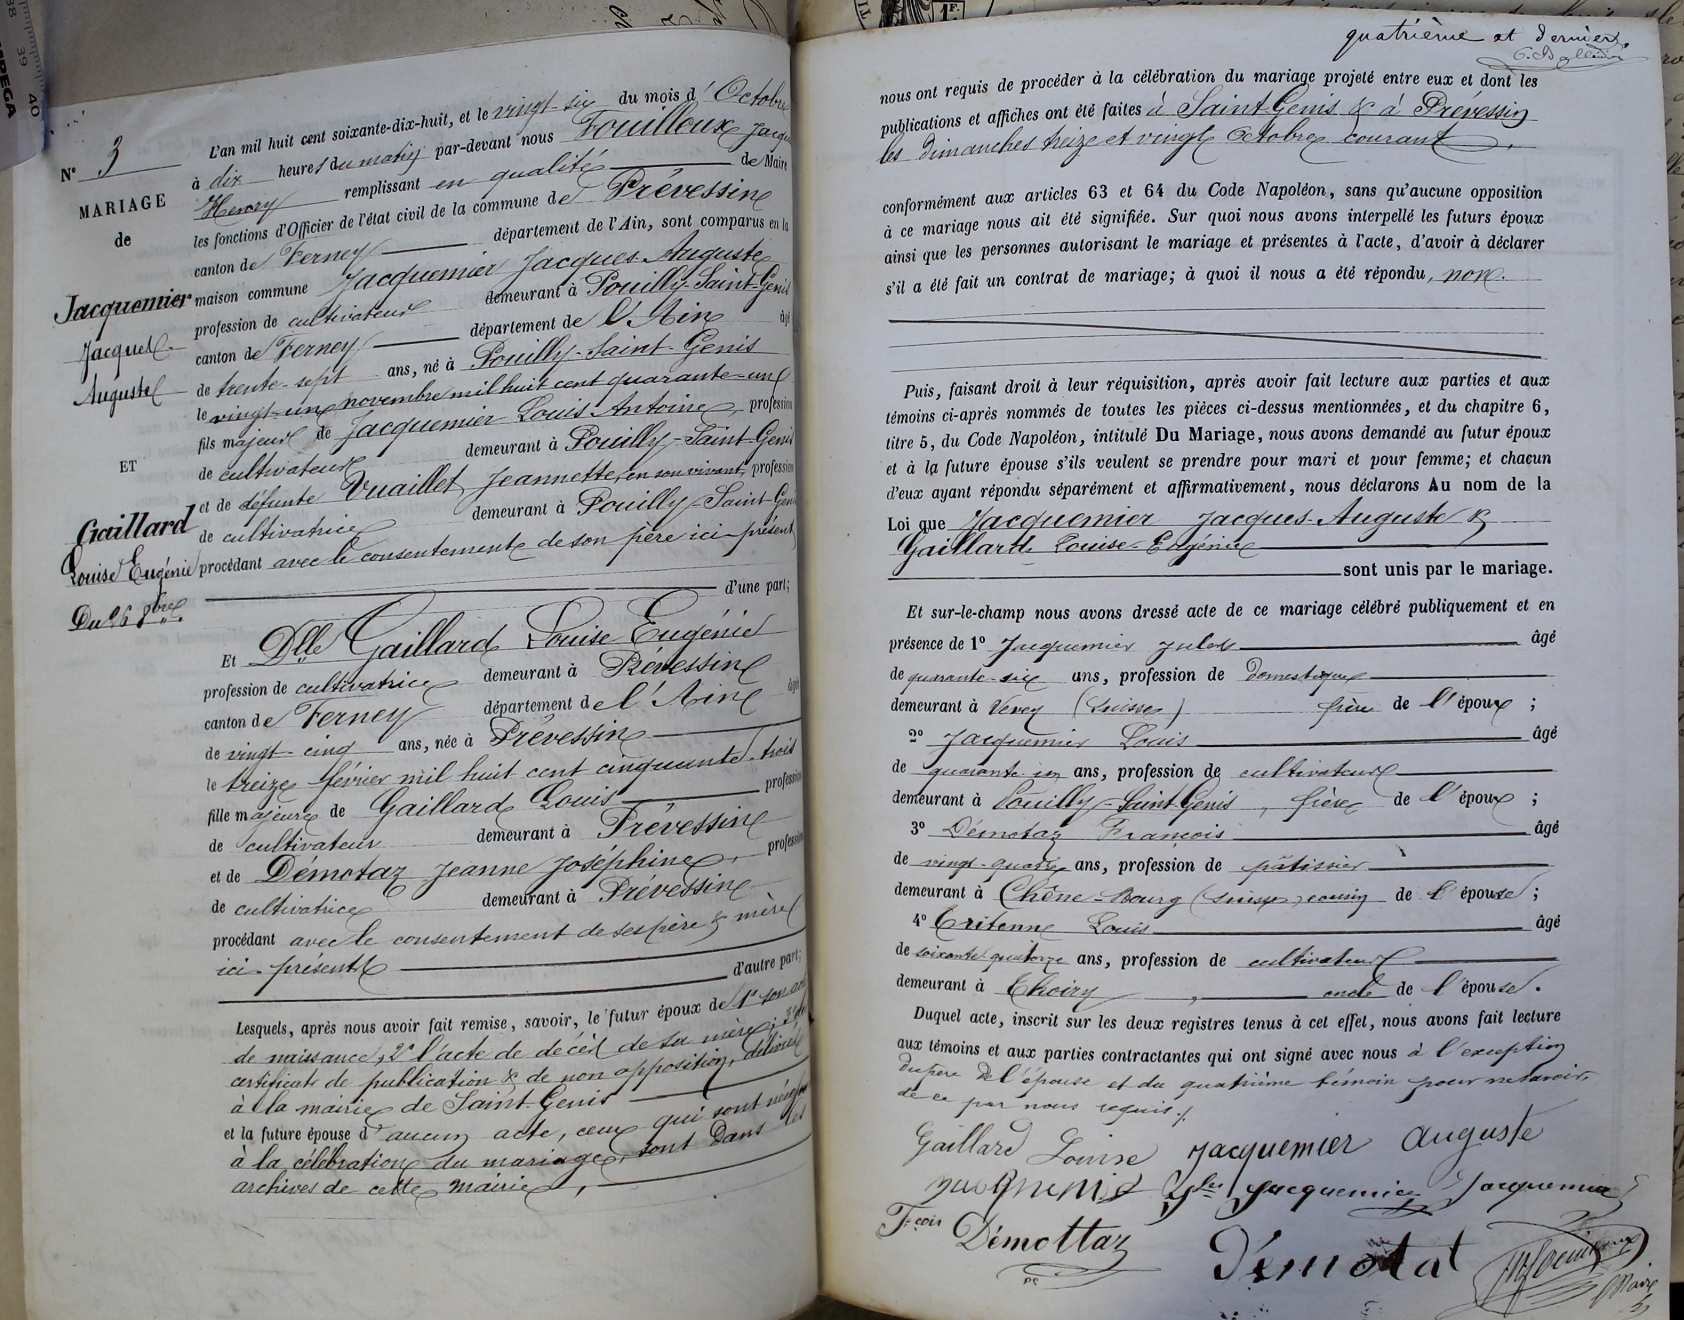 N° 3
MARIAGE
de
Jacquemier
Jacques
Auguste
ET
Gaillard
Louise Eugénie
Du 26 8bre
L'an mil huit cent soixante-dix-huit, et le vingt-six du mois d'Octobre
à dix heures du matin par-devant nous Fouilloux Jacques
Henry remplissant en qualité de Maire
les fonctions d'Officier de l'état civil de la commune de Prévessin
canton de Ferney département de l'Ain, sont comparus en la
maison commune Jacquemier Jacques Auguste
profession de cultivateur demeurant à Pouilly-Saint-Genis
canton de Ferney département de l'Ain âgé
de trente-sept ans, né à Pouilly-Saint-Genis
le vingt-un novembre mil huit cent quarante-un
fils majeur de Jacquemier Louis Antoine, profession
de cultivateur demeurant à Pouilly-Saint-Genis
et de défunte Vuaillet Jeannette, en son vivant, profession
de cultivatrice demeurant à Pouilly-Saint-Genis
procédant avec le consentement de son père ici présent
d'une part;
Et Dlle Gaillard Louise Eugénie
profession de cultivatrice demeurant à Prévessin
canton de Ferney département de l'Ain âgée
de vingt-cinq ans, née à Prévessin
le treize février mil huit cent cinquante-trois
fille majeure de Gaillard Louis profession
de cultivateur demeurant à Prévessin
et de Démotaz Jeanne Joséphine, profession
de cultivatrice demeurant à Prévessin
procédant avec le consentement de ses père & mère
ici présents
d'autre part;
Lesquels, après nous avoir fait remise, savoir, le futur époux de 1° son acte
de naissance, 2° l'acte de décès de sa mère; 3° de
certificats de publication & de non opposition, délivrés
à la mairie de Saint-Genis
et la future épouse d'aucun acte, ceux qui sont nécessaires
à la célébration du mariage, sont dans les
archives de cette mairie,
quatrième et dernier
nous ont requis de procéder à la célébration du mariage projeté entre eux et dont les
publications et affiches ont été faites à Saint-Genis & à Prévessin
les dimanches treize et vingt Octobre courant.
conformément aux articles 63 et 64 du Code Napoléon, sans qu'aucune opposition
à ce mariage nous ait été signifiée. Sur quoi nous avons interpellé les futurs époux
ainsi que les personnes autorisant le mariage et présentes à l'acte, d'avoir à déclarer
s'il a été fait un contrat de mariage; à quoi il nous a été répondu, non.
Puis, faisant droit à leur réquisition, après avoir fait lecture aux parties et aux
témoins ci-après nommés de toutes les pièces ci-dessus mentionnées, et du chapitre 6,
titre 5, du Code Napoléon, intitulé Du Mariage, nous avons demandé au futur époux
et à la future épouse s'ils veulent se prendre pour mari et pour femme; et chacun
d'eux ayant répondu séparément et affirmativement, nous déclarons Au nom de la
Loi que Jacquemier Jacques-Auguste &
Gaillard Louise-Eugénie
sont unis par le mariage.
Et sur-le-champ nous avons dressé acte de ce mariage célébré publiquement et en
présence de 1° Jacquemier Jules âgé
de quarante-six ans, profession de domestique
demeurant à Vevey (Suisse) frère de l'époux;
2° Jacquemier Louis âgé
de quarante-un ans, profession de cultivateur
demeurant à Pouilly-Saint-Genis, frère de l'époux;
3° Démotaz François âgé
de vingt-quatre ans, profession de pâtissier
demeurant à Chêne-Bourg (Suisse) cousin de l'épouse;
4° Critenne Louis âgé
de soixante quatorze ans, profession de cultivateur
demeurant à Thoiry, oncle de l'épouse.
Duquel acte, inscrit sur les deux registres tenus à cet effet, nous avons fait lecture
aux témoins et aux parties contractantes qui ont signé avec nous à l'exception
du père de l'épouse et du quatrième témoin pour ne savoir,
de ce par nous requis./.
Gaillard Louise Jacquemier Auguste
Jules Jacquemier Jacquemier
F.çois Démottaz Démotat
Maire